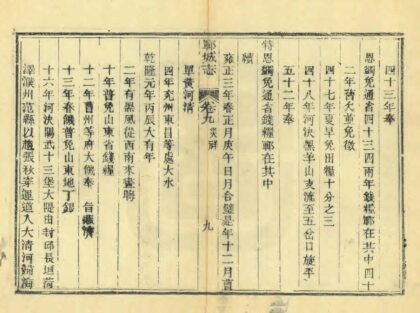 四十三年奉
恩蠲免通省四十三四兩年錢糧鄆在其中四十
二年舊欠並免徵
四十七年夏旱免田糧十分之三
四十八年河決黑羊山支流至五岔口旋平
五十二年奉
特恩蠲免通省錢糧鄆在其中
續
雍正三年春正月庚午日月合璧是年十二月
鄆城志 卷九 災祥 九
單黃河清
四年兗州東昌等處大水
乾隆元年丙辰大有年
二年有黑風從西南來晝晦
十年普免山東省錢糧
十二年曹州等府大饑奉 旨賑濟
十三年春饑普免山東地丁錢
十六年河決陽武十三堡大隄由封邱長垣菏
澤濮州范縣以趨張秋奪運道入大清河歸海